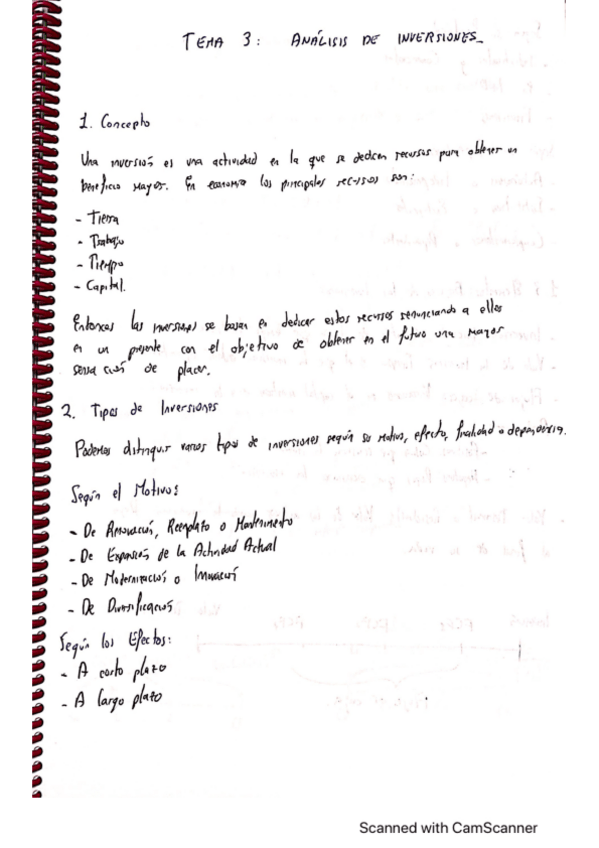 TEMA 3: ANÁLISIS DE INVERSIONES
1. Concepto
Una inversión es una actividad en la que se dedican recursos para obtener un
beneficio mayor. En economía los principales recursos son:
- Tierra
- Trabajo
- Tiempo
- Capital.
Entonces las inversiones se basan en dedicar estos recursos renunciando a ellos
en un presente con el objetivo de obtener en el futuro una mayor
sensación de placer.
2. Tipos de Inversiones
Podemos distinguir varios tipos de inversiones según su motivo, efecto, finalidad o dependencia.
Según el Motivo:
- De Renovación, Reemplazo o Mantenimiento
- De Expansión de la Actividad Actual
- De Modernización o Innovación
- De Diversificación
Según los Efectos:
- A corto plazo
- A largo plazo
Scanned with CamScanner